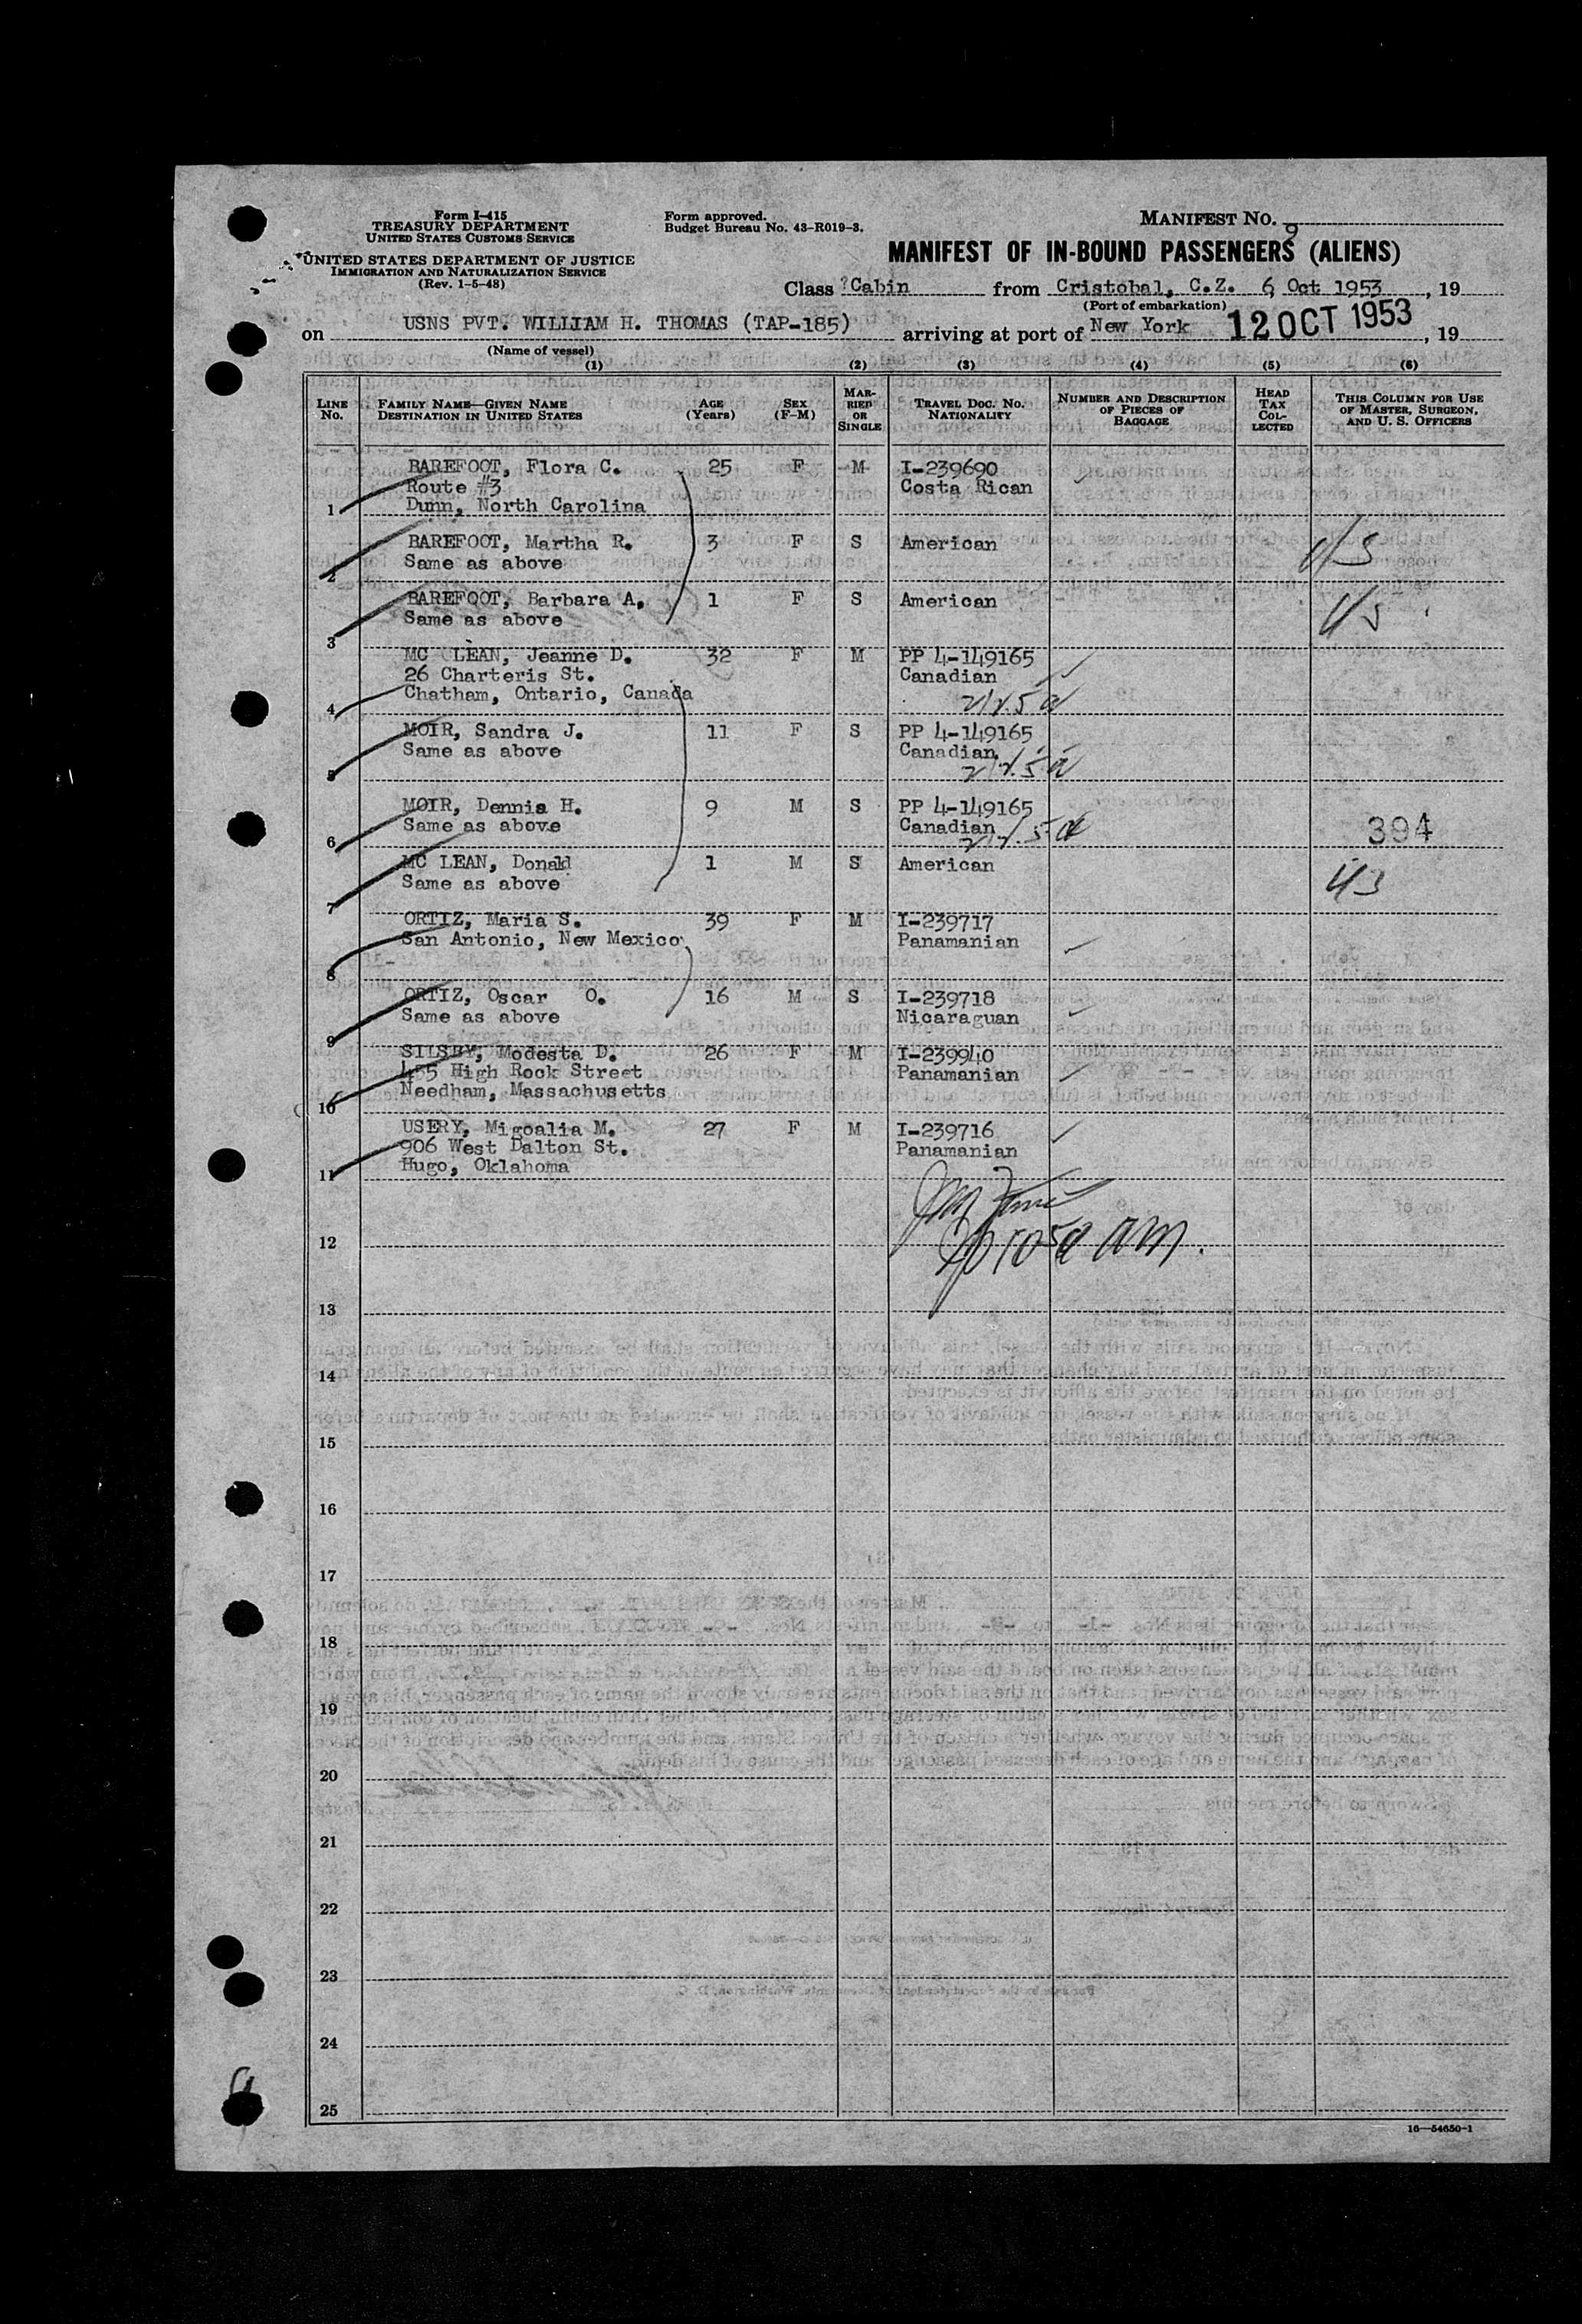 Form I-415
TREASURY DEPARTMENT
UNITED STATES CUSTOMS SERVICE
UNITED STATES DEPARTMENT OF JUSTICE
IMMIGRATION AND NATURALIZATION SERVICE
(Rev. 1-5-48)
Form approved.
Budget Bureau No. 43-R019-3.
MANIFEST NO. 9
MANIFEST OF IN-BOUND PASSENGERS (ALIENS)
Class Cabin from Cristobal, C.Z. 6 Oct 1953, 19
(Port of embarkation)
on USNS PVT. WILLIAM H. THOMAS (TAP-185) arriving at port of New York 12 OCT 1953, 19
(Name of vessel)
(1) (2) (3) (4) (5) (6)
LINE No. FAMILY NAME—GIVEN NAME DESTINATION IN UNITED STATES AGE (Years) SEX (F-M) MARRIED OR SINGLE TRAVEL DOC. NO. NATIONALITY NUMBER AND DESCRIPTION OF PIECES OF BAGGAGE HEAD TAX COLLECTED THIS COLUMN FOR USE OF MASTER, SURGEON, AND U. S. OFFICERS
BAREFOOT, Flora C. 25 F M I-239690
Route #3 Costa Rican
1 Dunn, North Carolina
BAREFOOT, Martha R. 3 F S American US
2 Same as above
BAREFOOT, Barbara A. 1 F S American US
3 Same as above
MC LEAN, Jeanne D. 32 F M PP 4-149165
26 Charteris St. Canadian
4 Chatham, Ontario, Canada
MOIR, Sandra J. 11 F S PP 4-149165
Same as above Canadian
5
MOIR, Dennia H. 9 M S PP 4-149165
6 Same as above Canadian 394
MC LEAN, Donald 1 M S American US
7 Same as above
ORTIZ, Maria S. 39 F M I-239717
San Antonio, New Mexico Panamanian
8
ORTIZ, Oscar O. 16 M S I-239718
Same as above Nicaraguan
9
SILSBY, Modesta D. 26 F M I-239940
455 High Rock Street Panamanian
10 Needham, Massachusetts
USERY, Migoalia M. 27 F M I-239716
906 West Dalton St. Panamanian
11 Hugo, Oklahoma
12
13
14
15
16
17
18
19
20
21
22
23
24
25
16—54650-1